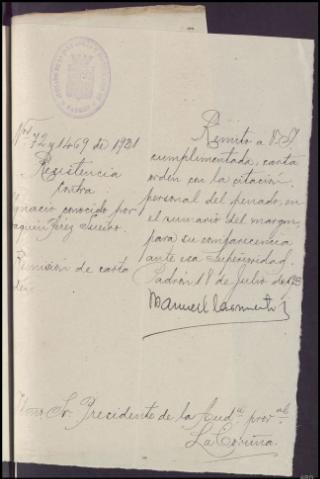 Nos 72 y 1469 de 1921
Resistencia
contra
Ignacio conocido por
Joaquín Pérez
Remisión de carta
orden
Remito a V.S.
cumplimentada, carta
orden con la citación
personal del penado, en
el sumario del margen,
para su comparecencia
ante esa Superioridad.
Padrón 18 de Julio de
Manuel
Sr. Presidente de la Auda. proval.
La Coruña.